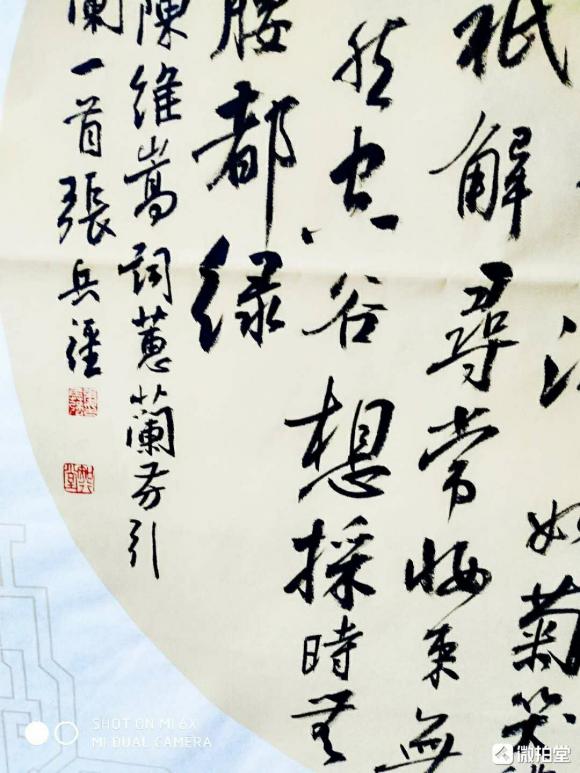 如菊笑
祇解尋常
然空谷想採時
腰都緑
陳維嵩詞蕙蘭芳引
蘭一首張兵
SHOT ON MI 6X
MI DUAL CAMERA
微拍堂